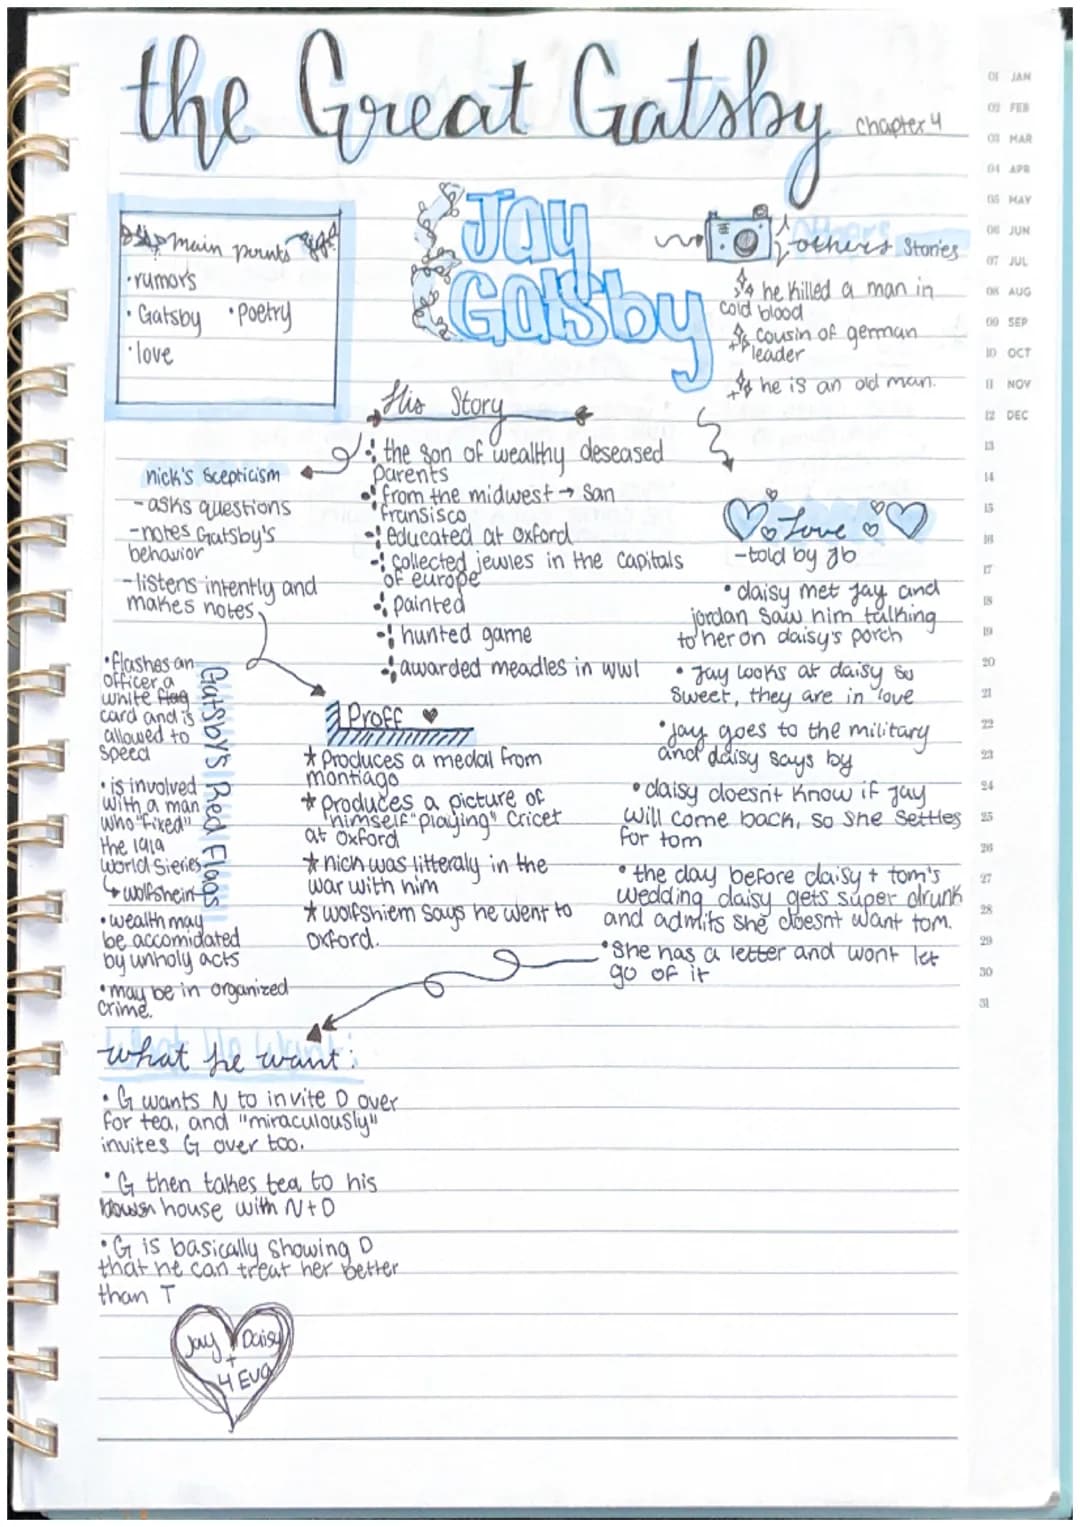 the Great Gatsby
Chapter 4
Main points
·rumors
·Gatsby ·Poetry
·love
Jay
Gatsby
others Stories
he killed a man in
cold blood
cousin of german
leader
he is an old man.
His Story
the son of wealthy deseased
parents
from the midwest → San
fransisco
educated at Oxford
collected jewles in the capitals
of europe
painted
hunted game
awarded meadles in ww1
nick's Scepticism
- asks questions
- notes Gatsby's
behavior
- listens intently and
makes notes
Love
- told by jb
• daisy met jay and
jordan saw him talking
to her on daisy's porch
• Jay looks at daisy so
sweet, they are in love
• jay goes to the military
and daisy says by
• daisy doesn't know if jay
will come back, so she settles
for tom
• the day before daisy + tom's
wedding daisy gets super drunk
and admits she doesnt want tom.
• She has a letter and wont let
go of it
Gatsby's Red Flags
• flashes an
officer a
white flag
card and is
allowed to
speed
• is involved
with a man
who "fixed"
the 1919
World Sieries
↳ wolfshein
• wealth may
be accomidated
by unholy acts
• may be in organized
crime.
Proff
* Produces a medal from
montiago
* Produces a picture of
"himself" playing" Cricet
at Oxford
* nich was litteraly in the
war with him
* wolfshiem says he went to
Oxford.
what he want:
• G wants N to invite D over
for tea, and "miraculously"
invites G over too.
• G then takes tea to his
house with N+D
• G is basically showing D
that he can treat her better
than T
Jay Daisy
+
4 Eva
01 JAN
02 FEB
03 MAR
04 APR
05 MAY
06 JUN
07 JUL
08 AUG
09 SEP
10 OCT
11 NOV
12 DEC
13
14
15
16
17
18
19
20
21
22
23
24
25
26
27
28
29
30
31